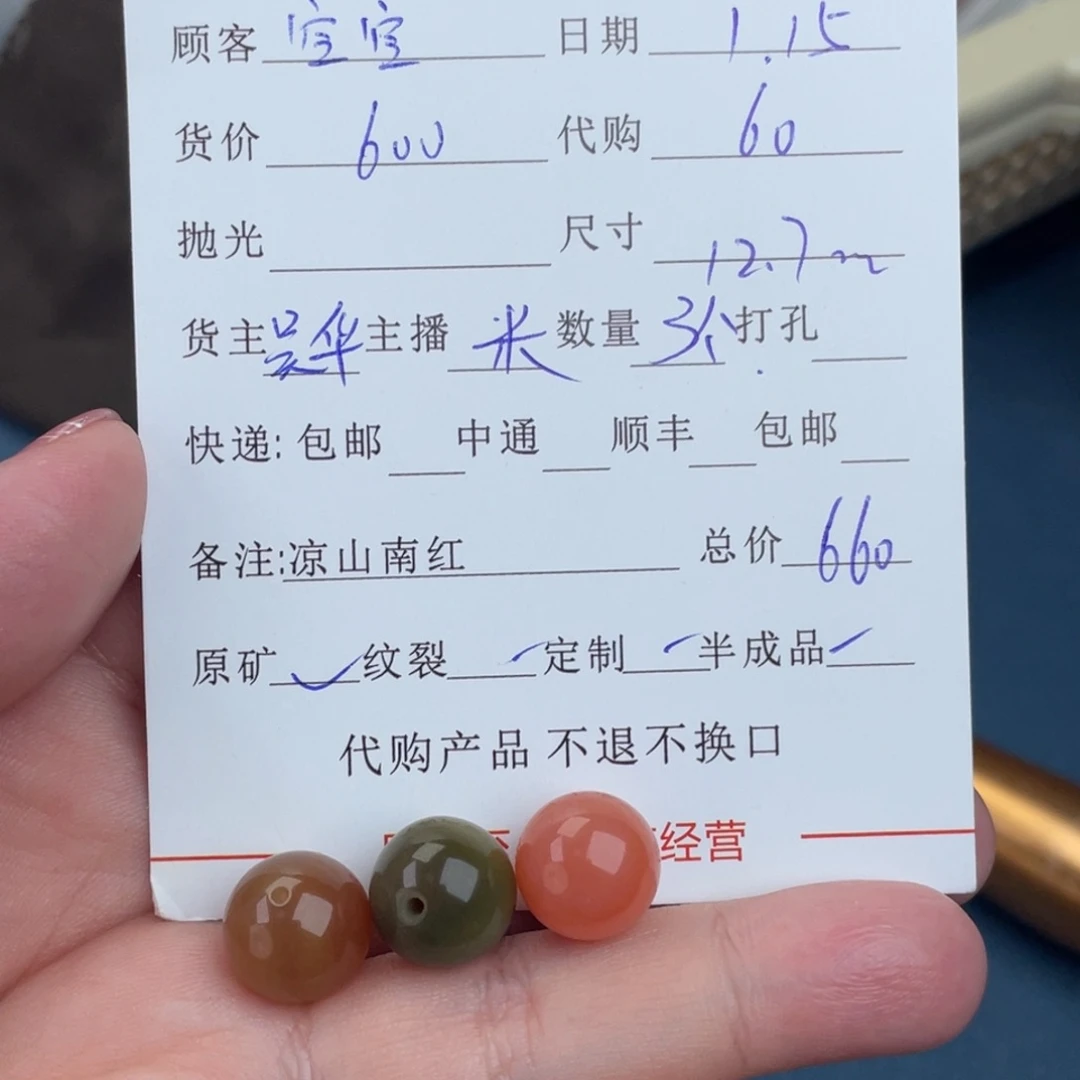 顾客 宜宜 日期 1.15
货价 600 代购 60
抛光 尺寸 12.7m
货主 吴华 主播 米 数量 3个 打孔
快递: 包邮 中通 顺丰 包邮
备注: 凉山南红 总价 660
原矿 ✓ 纹裂 ✓ 定制 ✓ 半成品 ✓
代购产品 不退不换口
经营